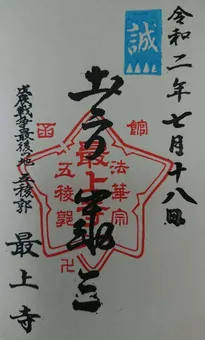 令和二年七月十八日
誠
土方歳三
函館
法華宗
最上寺
五稜郭
卍
戊辰戦争最後地 五稜郭
最上寺